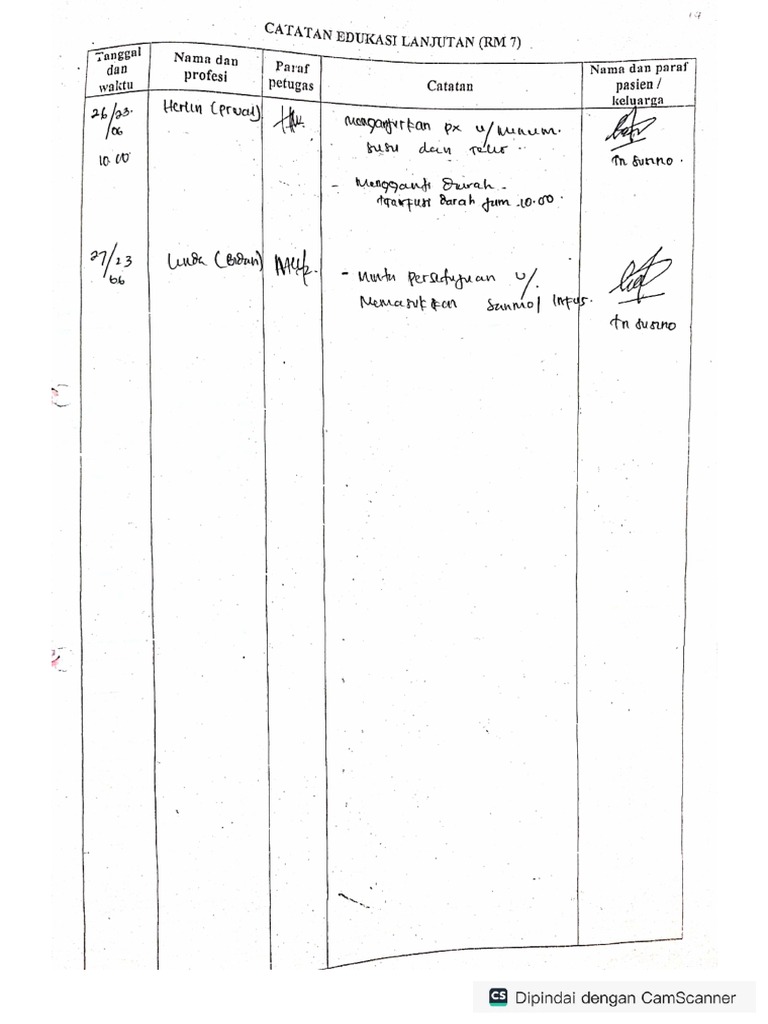 CATATAN EDUKASI LANJUTAN (RM 7)
Tanggal dan waktu
Nama dan profesi
Paraf petugas
Catatan
Nama dan paraf pasien / keluarga
26/23.
/06
10.00
Herlin (prwat)
Menganjurkan px u/ minum.
susu dan telur.
Tn Susno.
- Mengganti Darah -
Transfusi Darah Jam 10.00.
27/23
06
Linda (Bidan)
- Minta persetujuan u/.
Memasukkan Sanmol Infus.
Tn Susno
CS Dipindai dengan CamScanner